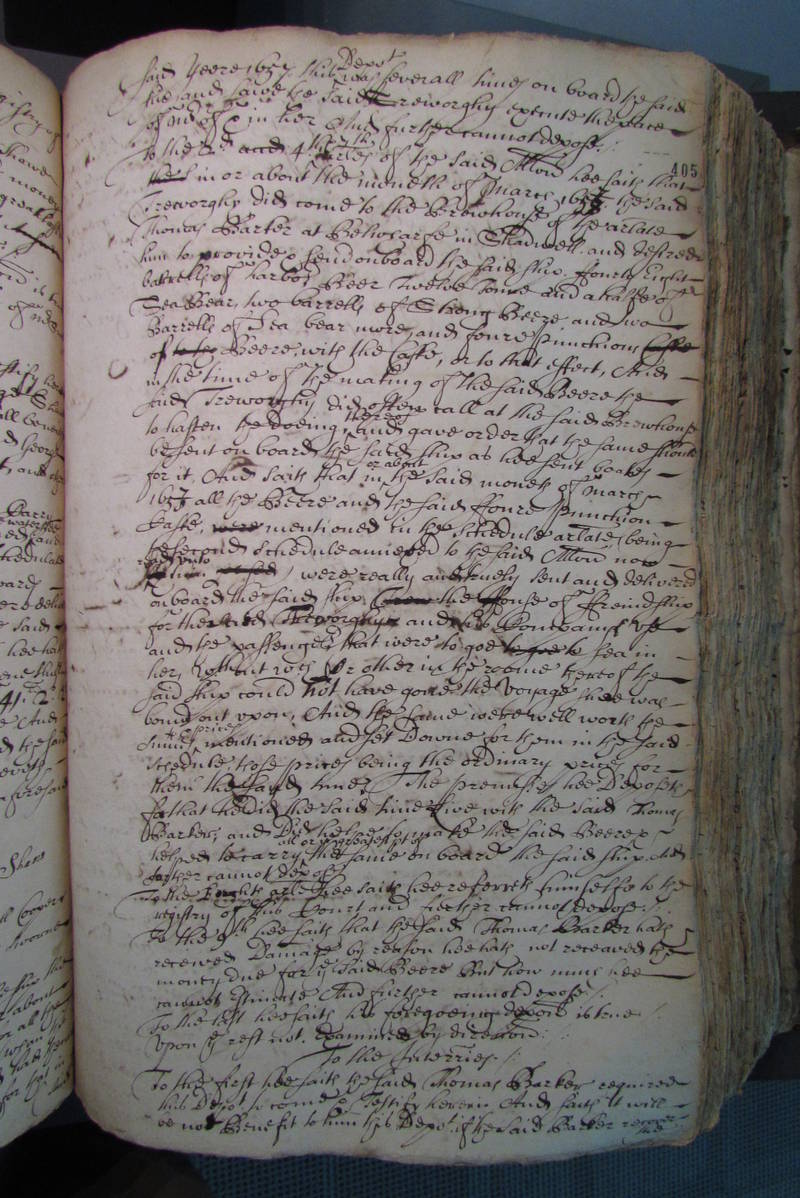 said yeere 1657 this Depot was severall times on board the said
shipp and sawe the said Treworghy execute the place
of Mr of in her And further cannot depose /:
405
To the 2d 4th 7th arles of the said Allon hee saith that
in or about the moneth of March 1657 the said
Treworghy did come to the Brewhouse of the arlate
Thomas Barker at Bellwarfe in Shadwell and desired
him to provide & send on board the said shipp fourty eight
barrells of harbor Beer Twelve Tonne and a halfe of
Sea Bear, two barrells of Strong Beere and two
Barrells of Sea bear more, and foure Punchions
of Beere, with the Caske, or to that effect, And
in the time of the making of the said Beere the
said Treworghy did often call at the said Brewhouse
to hasten the doeing thereof and gave order that the same should
be sent on board the said shipp as hee sent boates
for it, And saith that in or about the said moneth of March
1657 all the Beere and the said foure Punchion
Caske, were mentioned in the schedule arlate being
the second schedule annexed to the said Allon now
read unto him, were really and truely sent and delivered
on board the said shipp the use of Friendshipp
for the said Treworghy and his Companys use
and the passengers that were to goe to sea in
her, without wch or other in the roome thereof the
said shipp could not have gone the voyage shee was
bound out upon, And the same were well worth the
summes & prices mentioned and set downe for them in the said
schedule, those prices being the ordinary prices for
them the said times, The premisses hee Deposeth
for that he did the said time live with the said Thomas
Barker, and did helpe to make the said Beere &
helped to carry all or the greatest pt of the same on board the said shipp And
further cannot depose
To the Eighth arle hee saith hee referreth himselfe to the
registry of this Court and further cannot depose /:
To the 9th hee saith that the said Thomas Barker hath
received Damage by reason hee hath not received the
money due for ye said Beere But how much hee
cannot estimate And further cannot depose /:
To the last hee saith his foregoeing depon is true /:
Upon ye rest not examined by direction /:
To the Interries /:
To the first hee saith the said Thomas Barker required
this Depot to come & testify herein And saith it will
be no Benefit to him this Depot if the said Barker recover